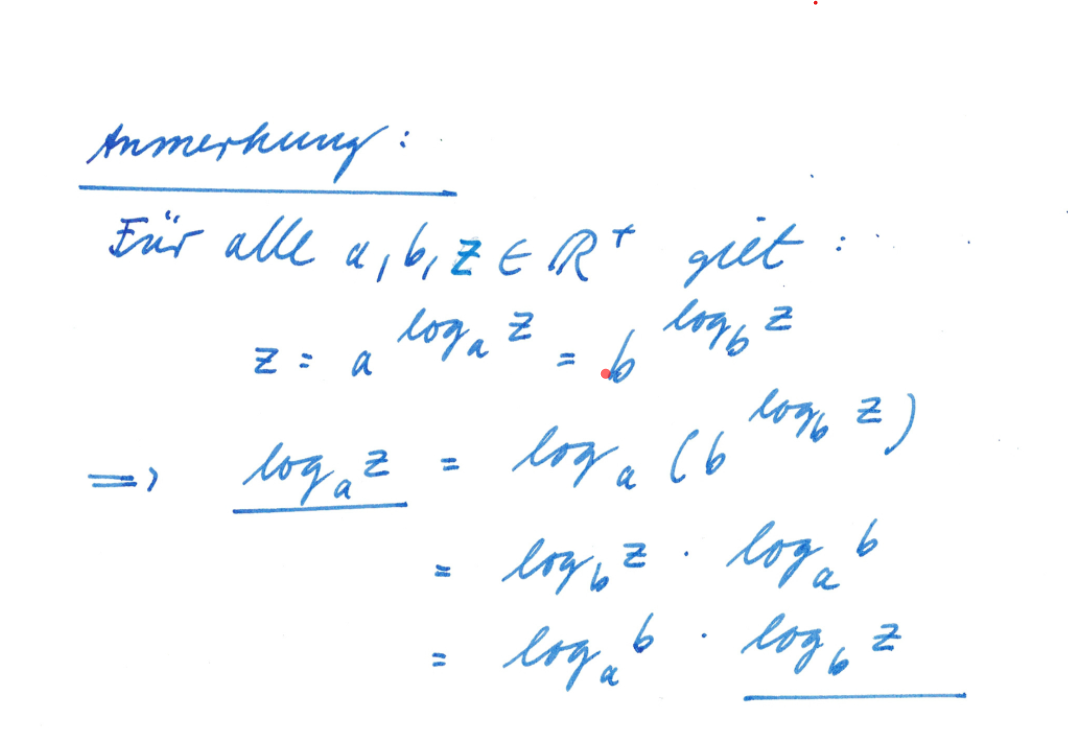 Anmerkung:
Für alle a, b, z ∈ ℝ⁺ gilt:
z = a^(log_a z) = b^(log_b z)
⇒ log_a z = log_a (b^(log_b z))
= log_b z · log_a b
= log_a b · log_b z